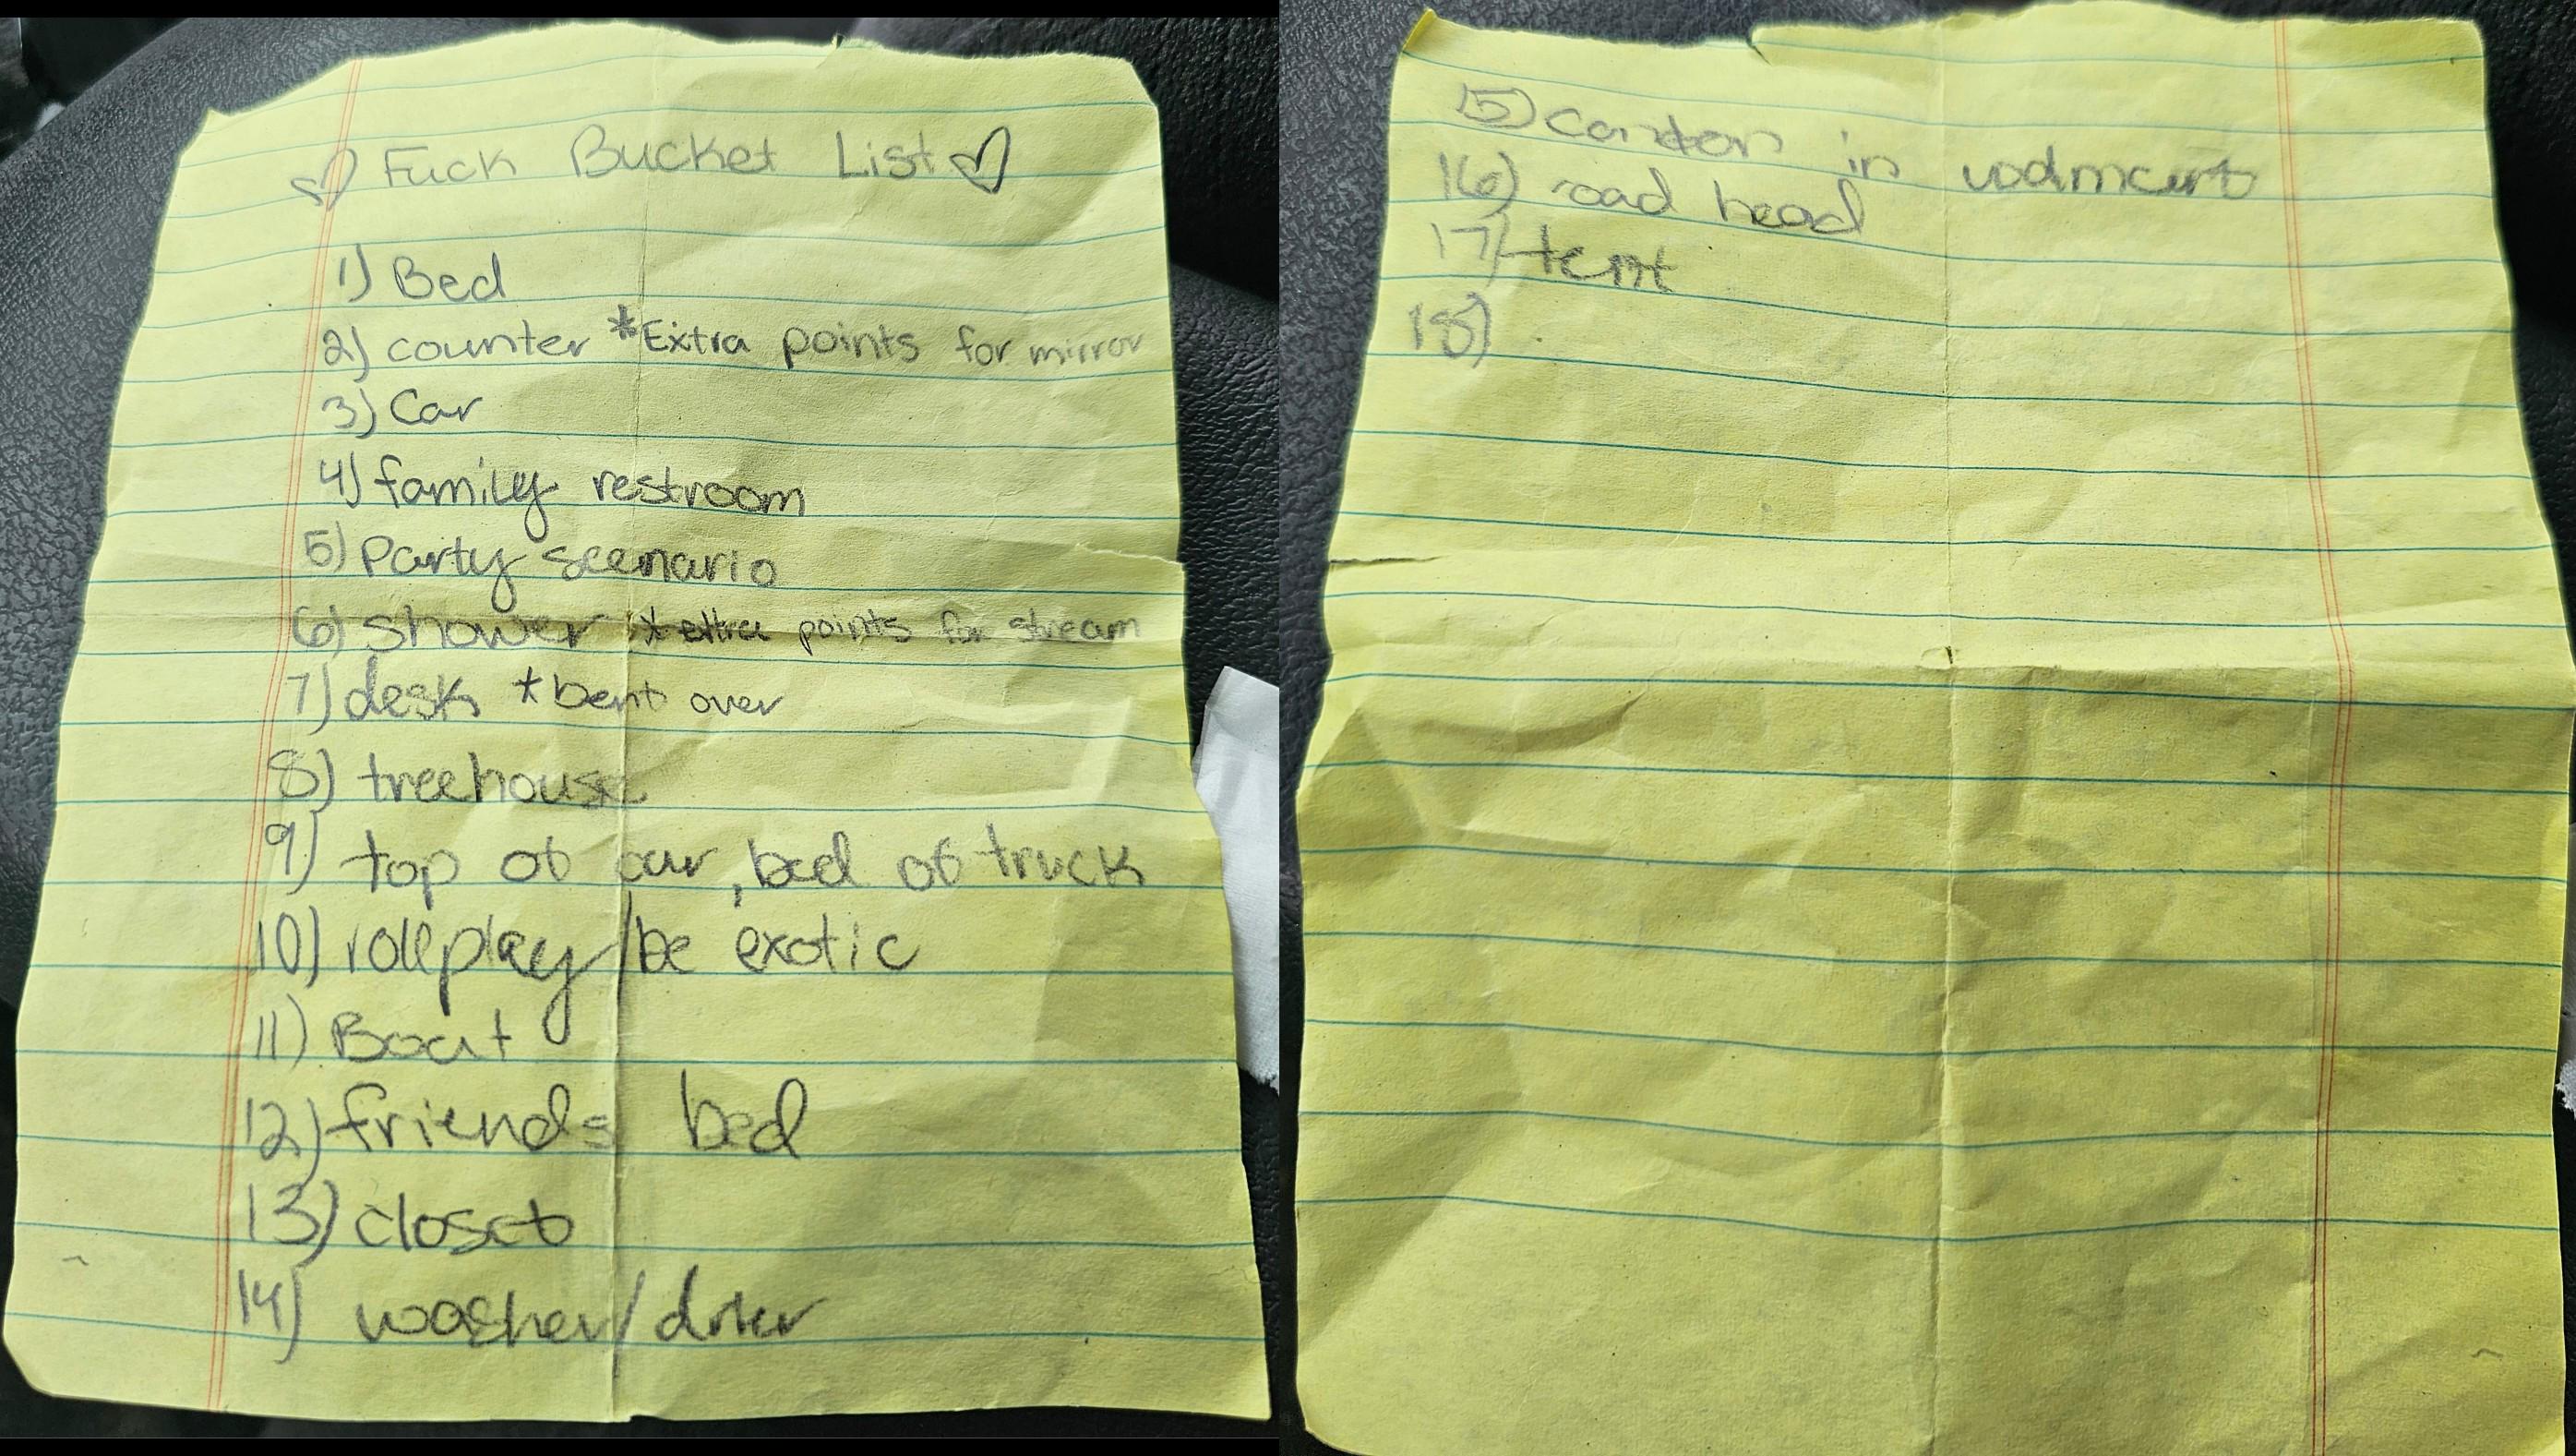 ♡ Fuck Bucket List ♡
1) Bed
2) counter *Extra points for mirror
3) Car
4) family restroom
5) Party scenario
6) shower *extra points for stream
7) desk *bent over
8) treehouse
9) top of car, bed of truck
10) rollplay/be exotic
11) Boat
12) friends bed
13) closet
14) washer/drier
15) in walmart
16) road head
17) tent
18)